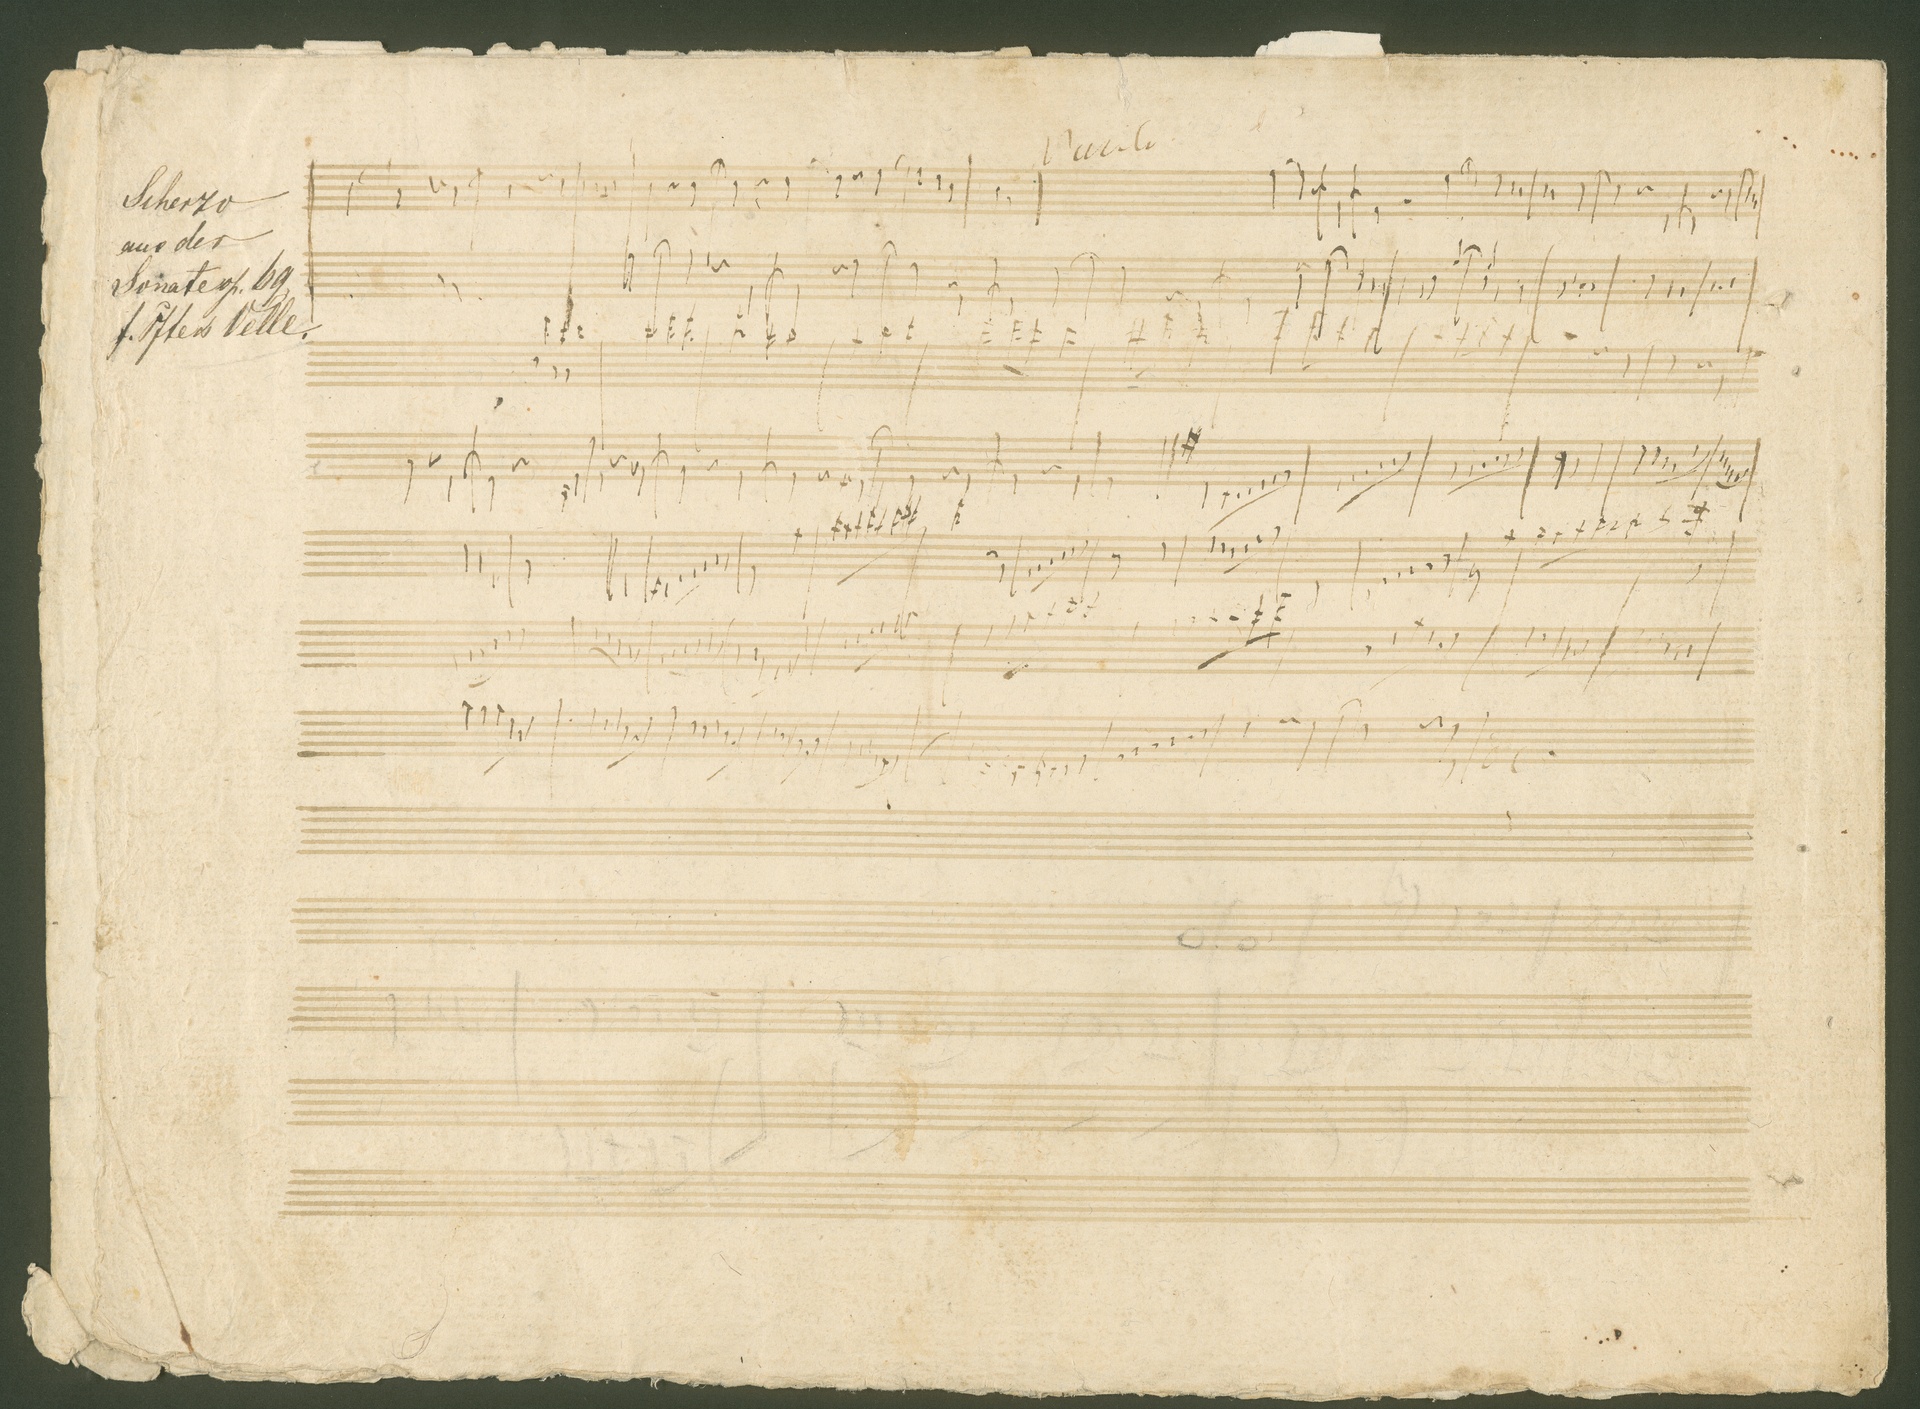 Scherzo
aus der
Sonate op. 69
f. Pfte u Vclle.